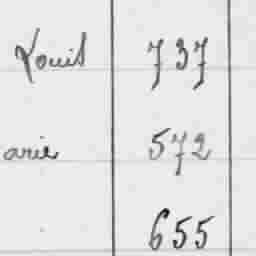 Louis 737
arie 572
655